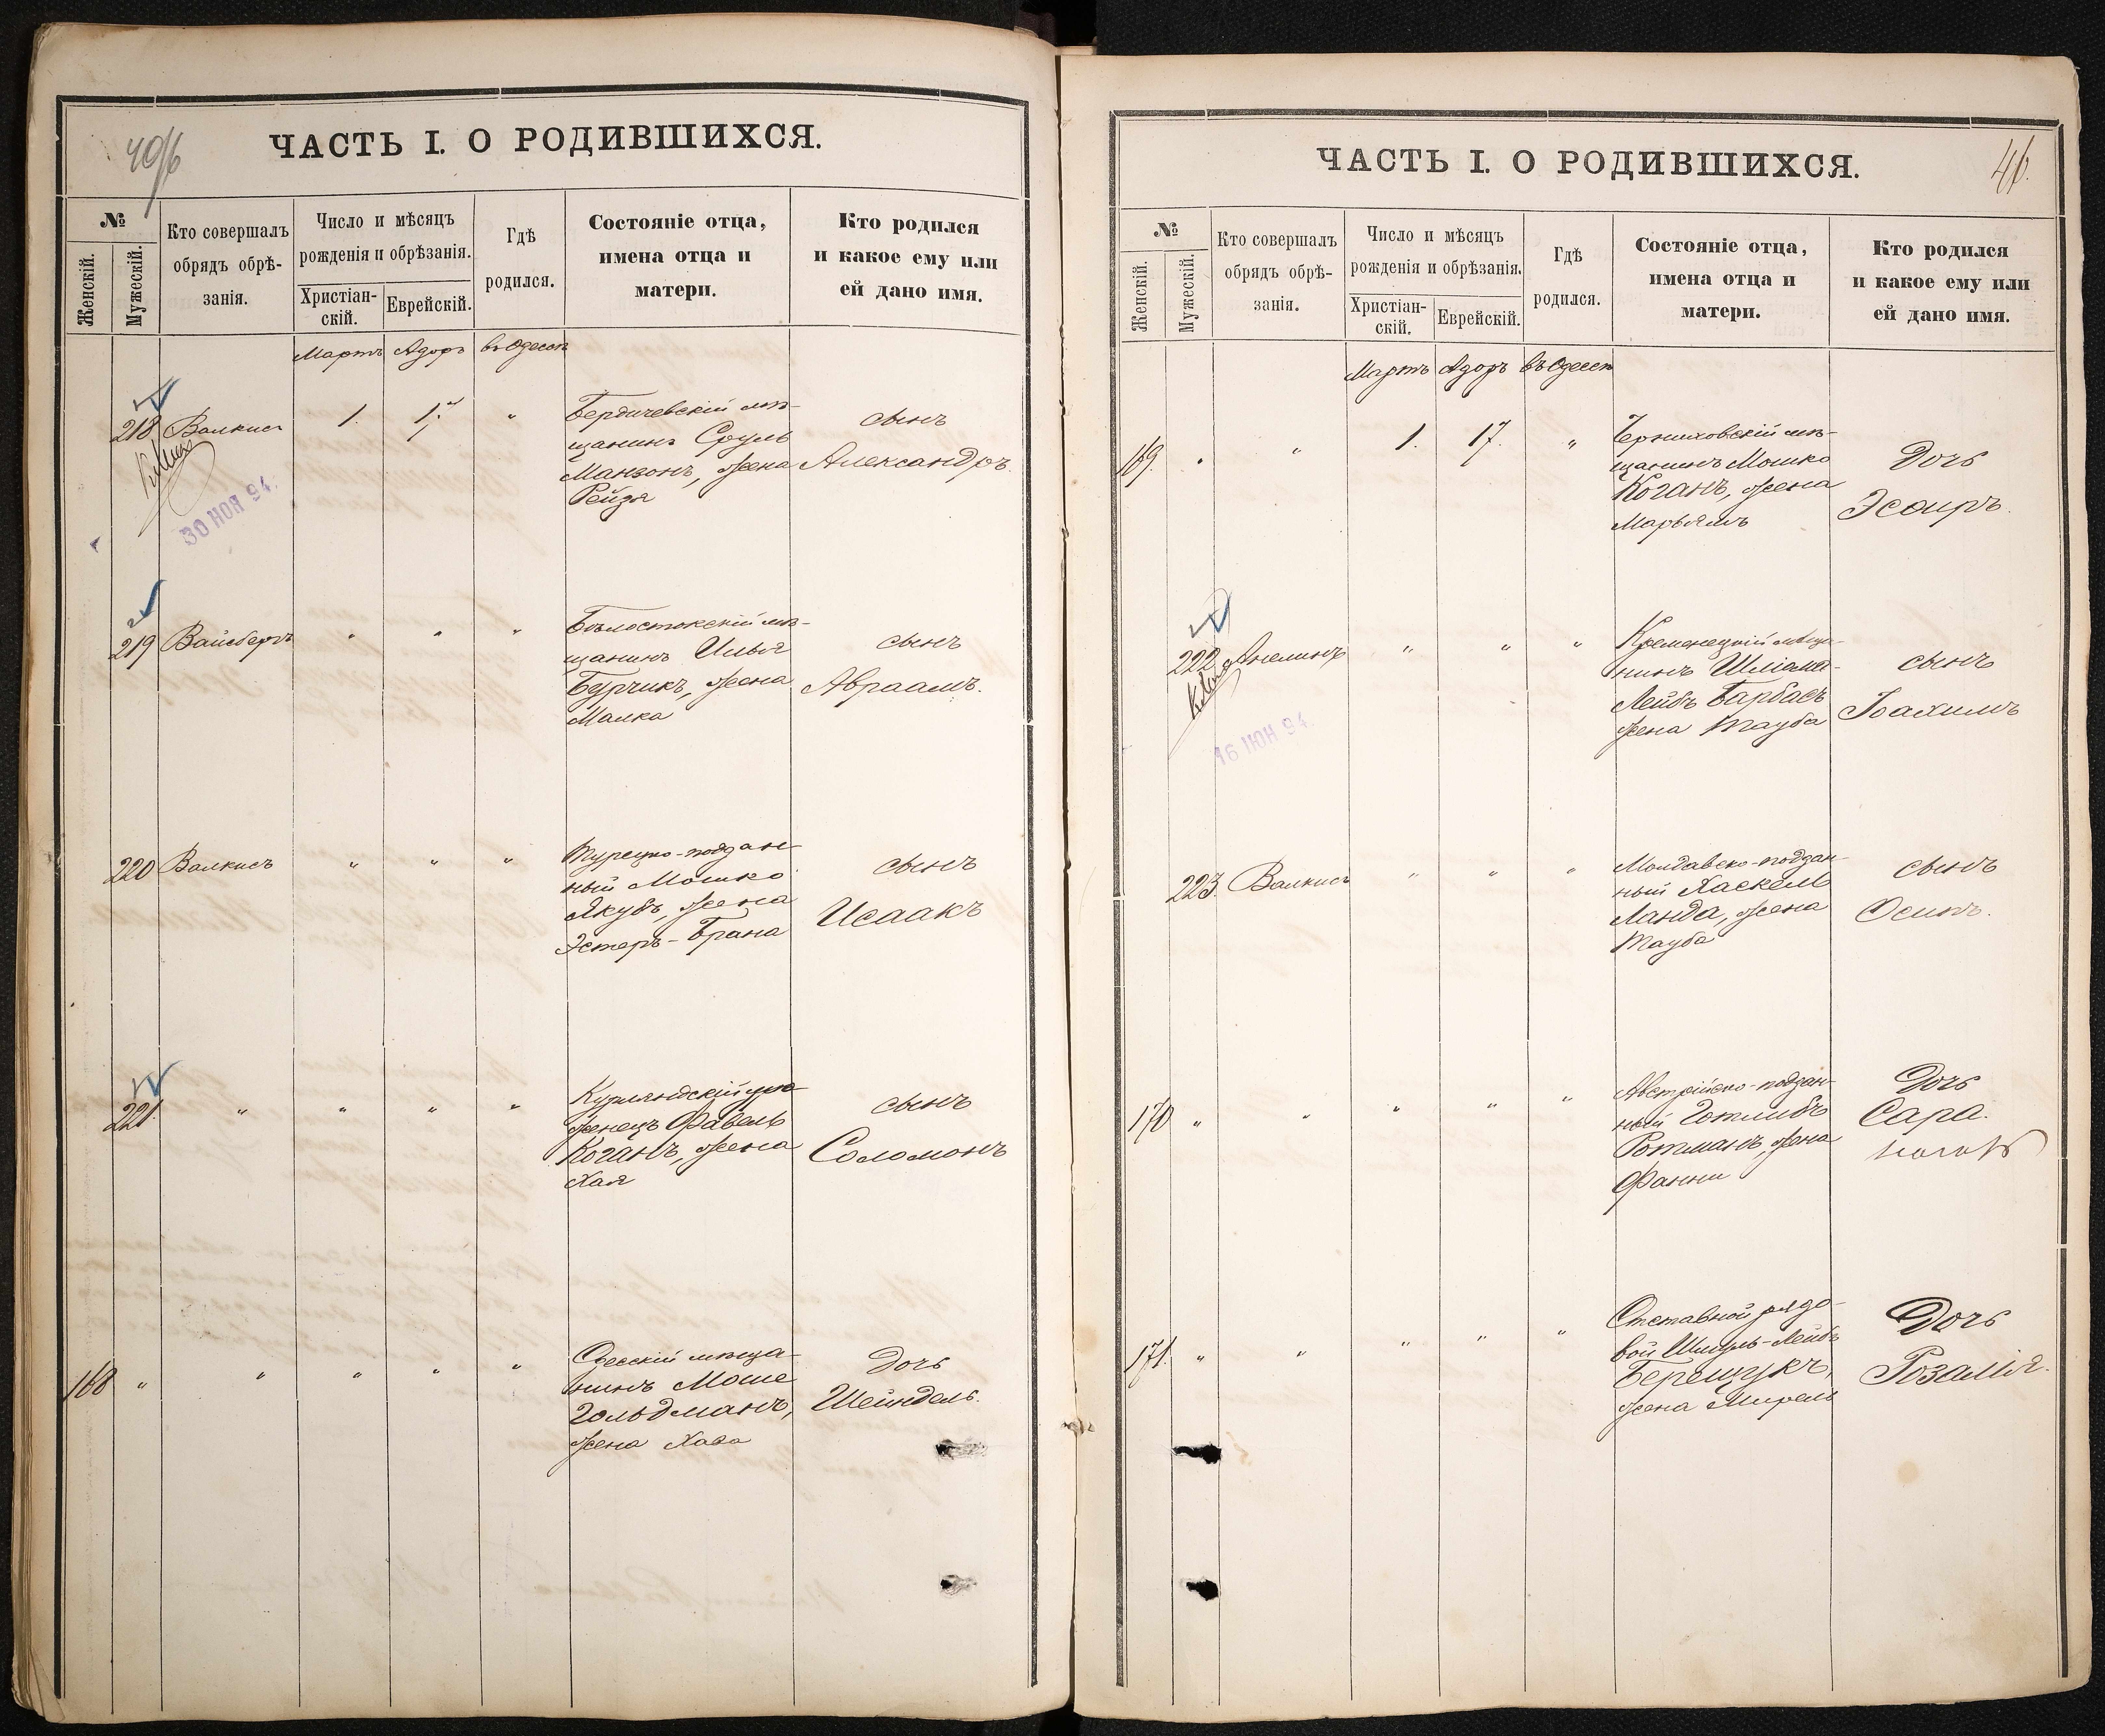 40/6
ЧАСТЬ I. О РОДИВШИХСЯ.
№
Женскій.
Мужескій.
Кто совершалъ
обрядъ обрѣ-
занія.
Число и мѣсяцъ
рожденія и обрѣзанія.
Христіан-
скій.
Еврейскій.
Гдѣ
родился.
Состояніе отца,
имена отца и
матери.
Кто родился
и какое ему или
ей дано имя.
Мартъ Адоръ въ Одессѣ
218 Валкисъ 1. 17 "
Бердичевскій мѣ-
щанинъ Сруль
Манзонъ, жена
Рейзя
сынъ
Александръ.
30 НОЯ 94.
219 Вайсбергъ " " "
Бѣлостокскій мѣ-
щанинъ Илья
Бурчикъ, жена
Малка
сынъ
Авраамъ.
220 Валкисъ " " "
Турецко-поддан-
ный Мошко
Якубъ, жена
Эстеръ-Брана
сынъ
Исаакъ
221. " " " "
Курляндскій уро
женецъ Фавель
Коганъ, жена
Хая
сынъ
Соломонъ
168 " " " " "
Одесскій мѣща-
нинъ Моше
Гольдманъ,
жена Хава
Дочь
Шейндель.
ЧАСТЬ I. О РОДИВШИХСЯ.
46.
№
Женскій.
Мужескій.
Кто совершалъ
обрядъ обрѣ-
занія.
Число и мѣсяцъ
рожденія и обрѣзанія.
Христіан-
скій.
Еврейскій.
Гдѣ
родился.
Состояніе отца,
имена отца и
матери.
Кто родился
и какое ему или
ей дано имя.
Мартъ Адоръ въ Одессѣ
169. " " 1. 17. "
Черниховскій мѣ-
щанинъ Мошко
Коганъ, жена
Марьямъ
Дочь
Эсѳиръ.
222 " " "
Кременецкій мѣща-
нинъ Шліома-
Лейбъ Барбасъ
жена Тауба
сынъ
Іоахимъ
16 ІЮН 94.
223. Валкисъ " " "
Молдавско-поддан-
ный Хаскель
Ланда, жена
Тауба
сынъ
Осипъ.
170 " " " " "
Австрійско-поддан-
ный Готлибъ
Ротманъ, жена
Фанни
Дочь
Сара.
171. " " " " "
Отставной рядо-
вой Шмуль-Лейбъ
Берещукъ,
жена Мирель
Дочь
Розалія.